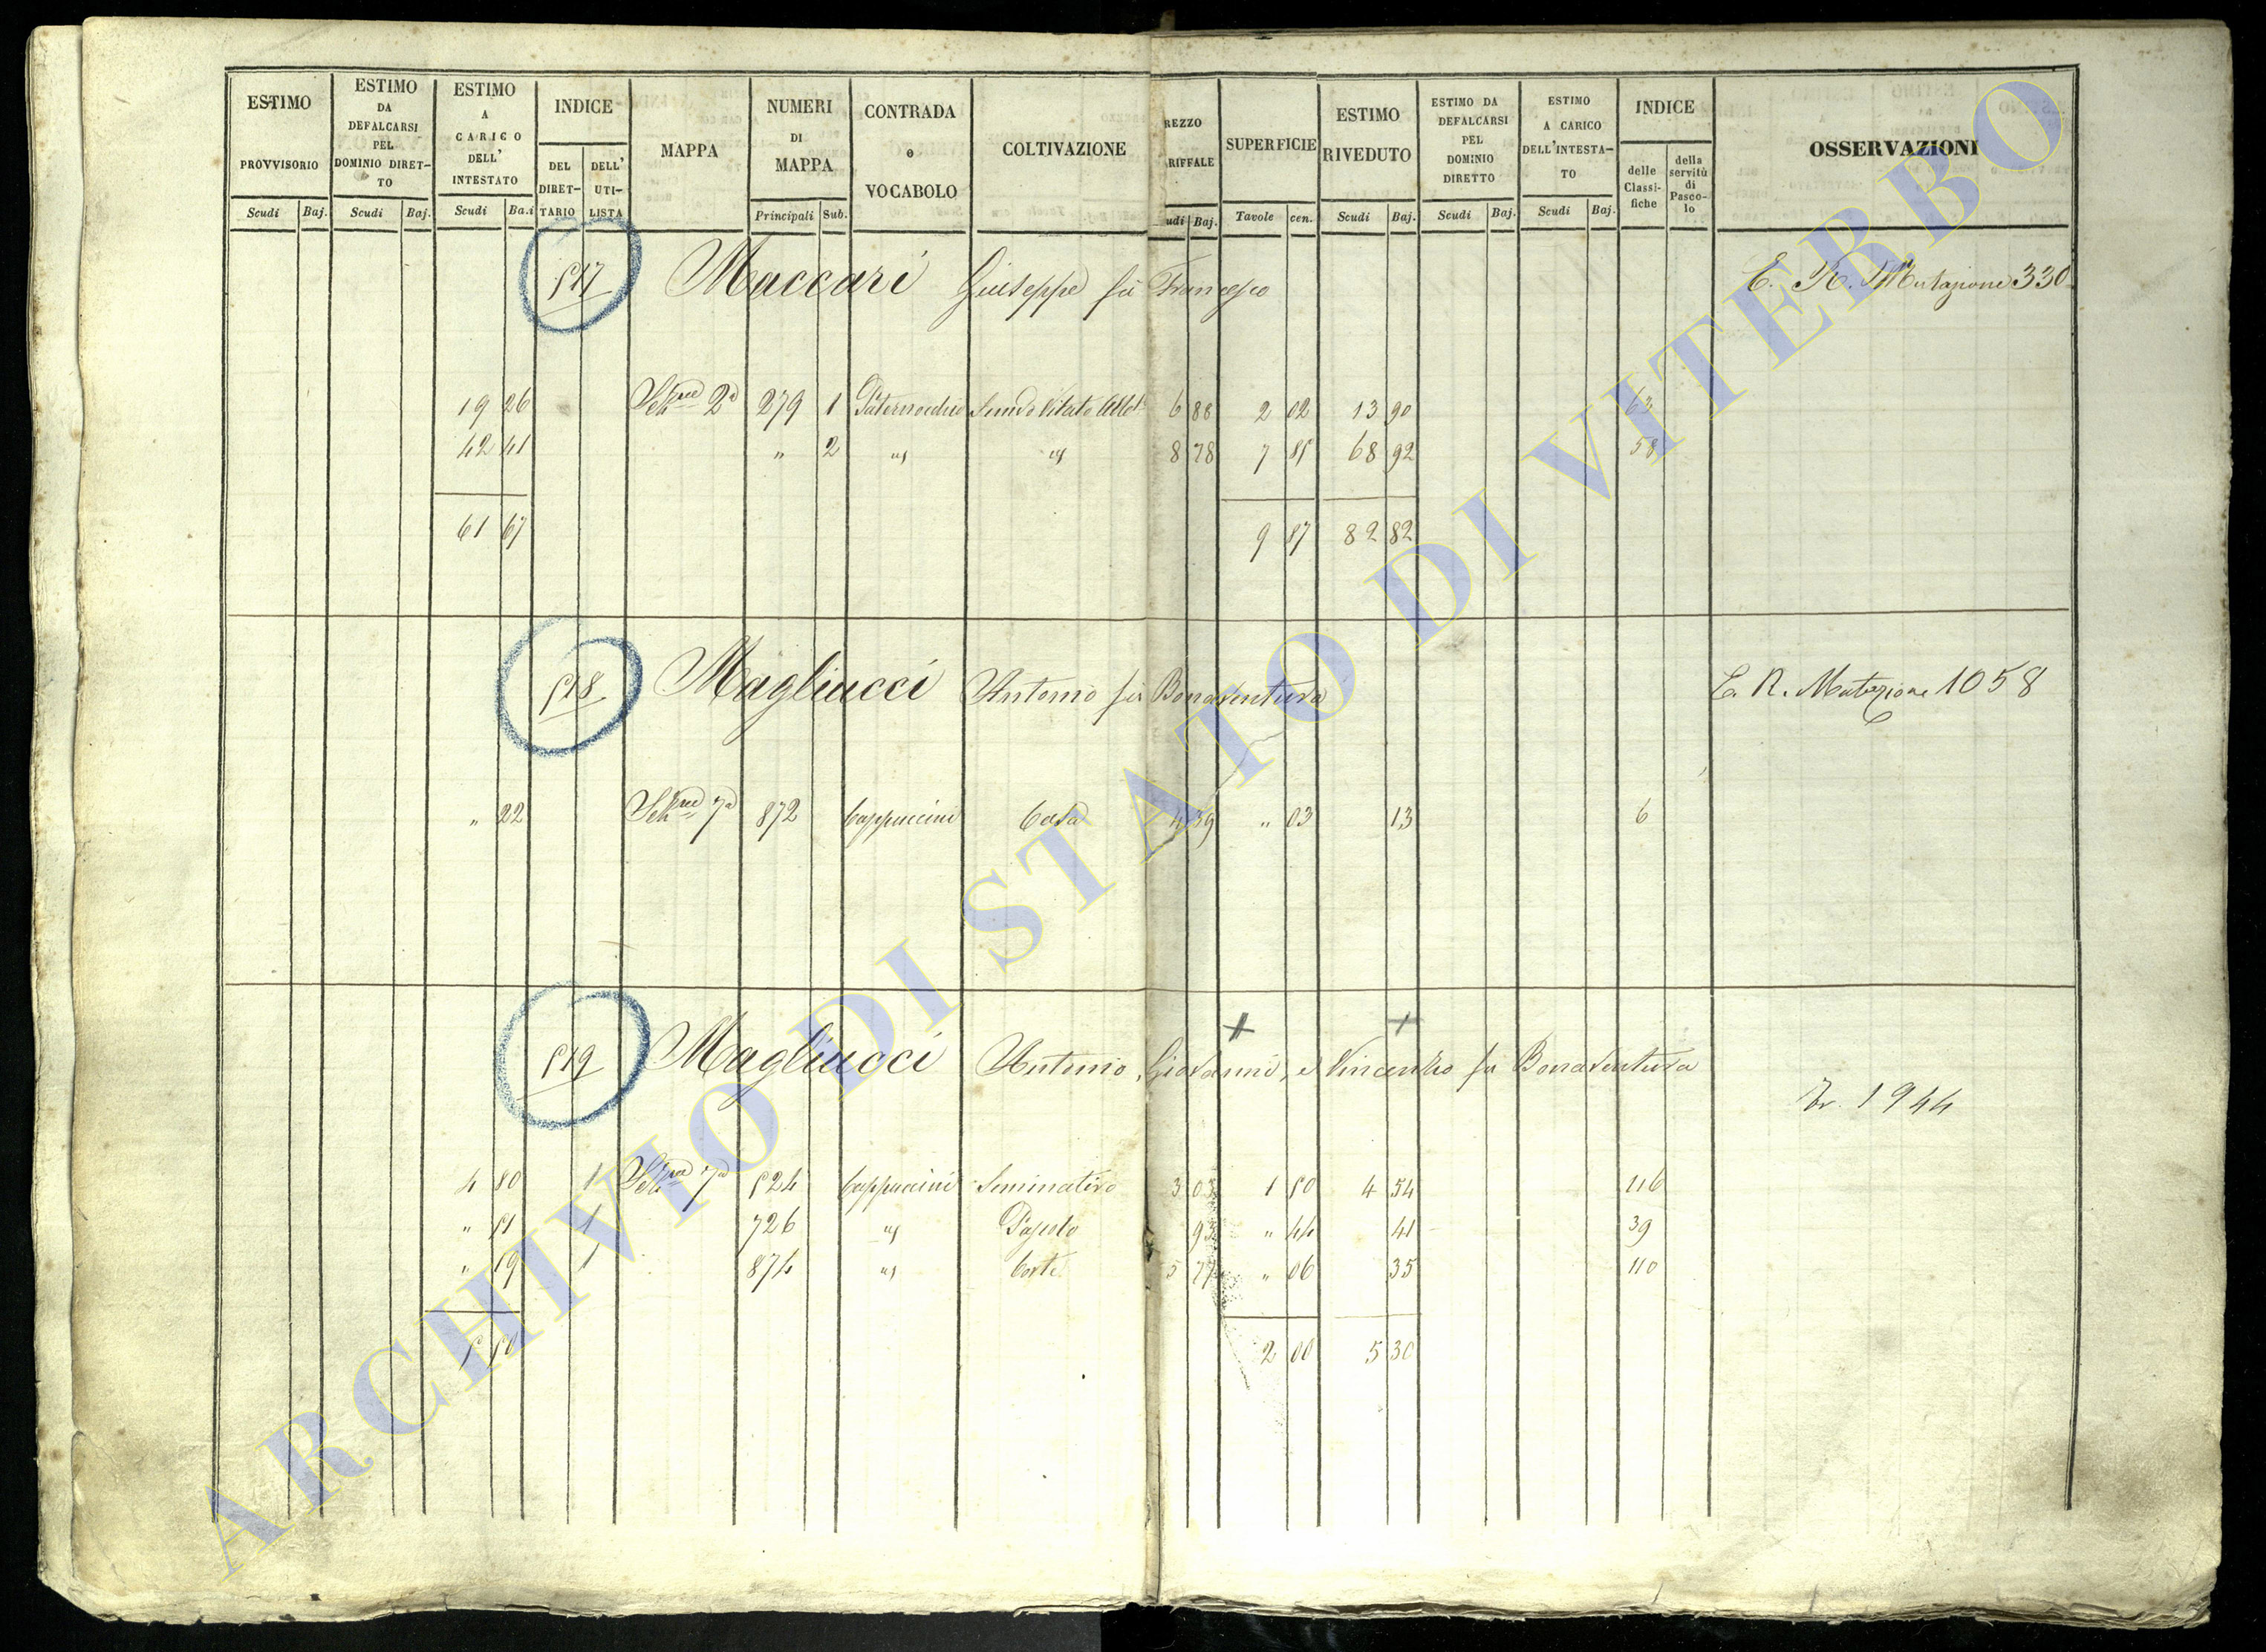 ESTIMO PROVVISORIO
ESTIMO DA DEFALCARSI PEL DOMINIO DIRETTO
ESTIMO A CARICO DELL' INTESTATO
INDICE
DEL DIRETTARIO
DELL' UTILISTA
MAPPA
NUMERI DI MAPPA
CONTRADA o VOCABOLO
COLTIVAZIONE
REZZO RIFFALE
SUPERFICIE
ESTIMO RIVEDUTO
ESTIMO DA DEFALCARSI PEL DOMINIO DIRETTO
ESTIMO A CARICO DELL'INTESTATO
INDICE
delle Classifiche
della servitù di Pascolo
OSSERVAZIONI
Scudi Baj. Scudi Baj. Scudi Ba.i Principali Sub. udi Baj. Tavole cen. Scudi Baj. Scudi Baj. Scudi Baj.
517 Maccari Giuseppe fu Francesco E. R. Mutazione 330
19 26 Sez.ne 2a 279 1 6 88 2 02 13 90 63
42 41 " 2 " " 8 78 7 85 68 92 58
61 67 9 87 82 82
518 Magliucci Antonio fu Bonaventura E. R. Mutazione 1058
" 22 Sez.ne 7a 872 Cappuccini Casa 4 39 " 03 13 6
519 Magliucci Antonio, Giovanni, e Vincenzo fu Bonaventura
Tr. 1944
4 80 1 Sez.ne 7a 524 Cappuccini Seminativo 3 03 1 50 4 54 116
" 51 1 726 " Pascolo 93 " 44 41 39
" 19 1 874 " Corte 5 77 " 06 35 110
5 50 2 00 5 30
ARCHIVIO DI STATO DI VITERBO